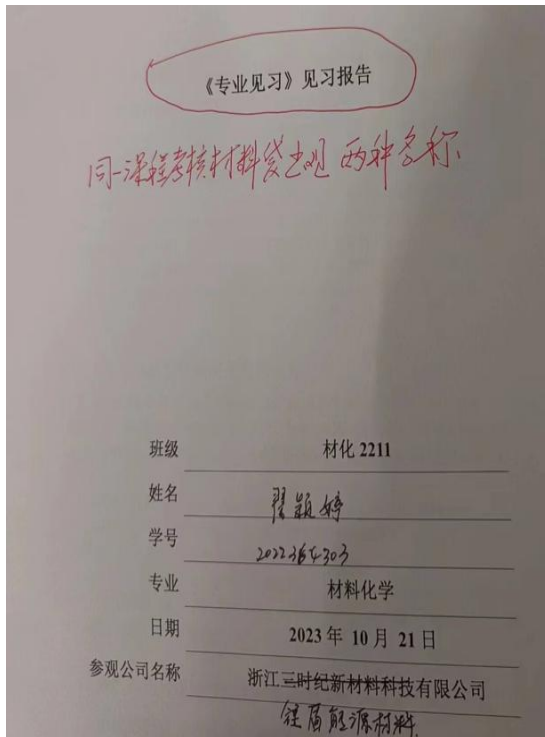 《专业见习》见习报告
同一课程考核材料袋出现两种名称
班级 材化 2211
姓名 翟颖婷
学号
专业 材料化学
日期 2023 年 10 月 21 日
参观公司名称 浙江三时纪新材料科技有限公司
能源材料